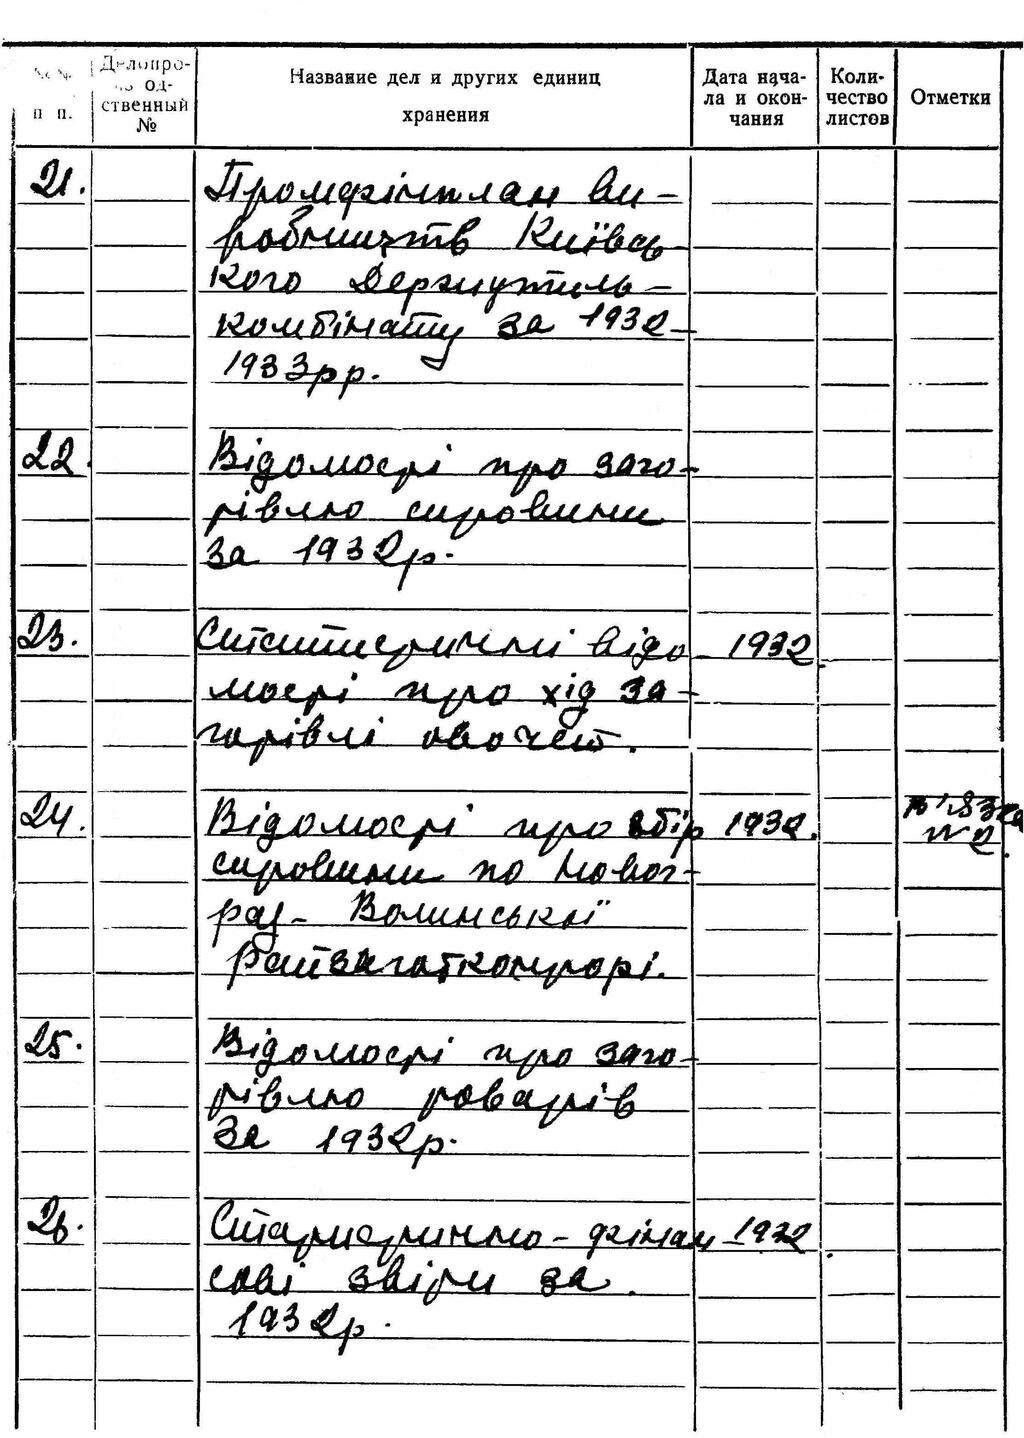 № № п п. Делопро- из од- ственный № Название дел и других единиц хранения Дата нача- ла и окон- чания Коли- чество листов Отметки
21. Промфінплан ви-
робництв Київсь-
кого Держутиль-
комбінату за 1932-
1933рр.
22. Відомості про заго-
тівлю сировини
за 1932р.
23. Статистичні відо- 1932.
мості про хід за-
готівлі овочей.
24. Відомості про збір 1932. в'язка
сировини по Новог- № 2.
рад-Волинській
Райзаготконторі.
25. Відомості про заго-
тівлю товарів
за 1932р.
26. Статистично-фінан- 1932.
сові звіти за
1932р.